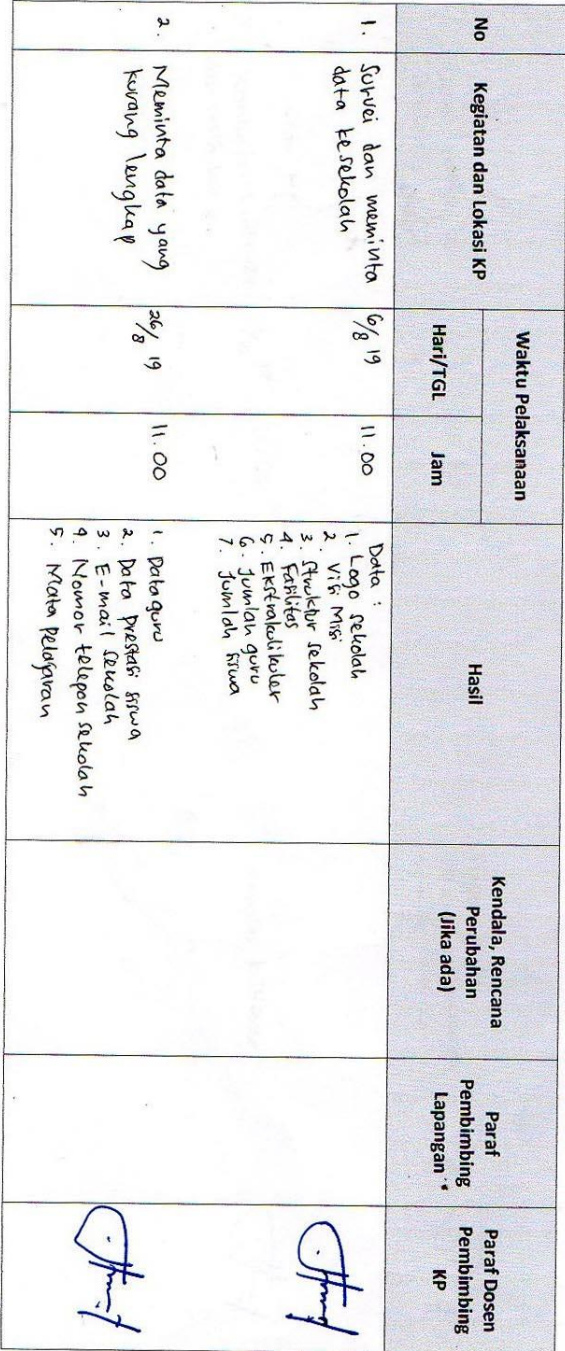 No
Kegiatan dan Lokasi KP
Waktu Pelaksanaan
Hari/TGL
Jam
Hasil
Kendala, Rencana
Perubahan
(Jika ada)
Paraf
Pembimbing
Lapangan
Paraf Dosen
Pembimbing
KP
1.
Survei dan meminta
data ke sekolah
6/8 19
11.00
Data :
1. Logo sekolah
2. Visi Misi
3. Struktur sekolah
4. Fasilitas
5. Ekstrakulikuler
6. Jumlah guru
7. Jumlah siswa
2.
Meminta data yang
kurang lengkap
26/8 19
11.00
1. Data guru
2. Data prestasi siswa
3. E-mail sekolah
4. Nomor telepon sekolah
5. Mata Pelajaran